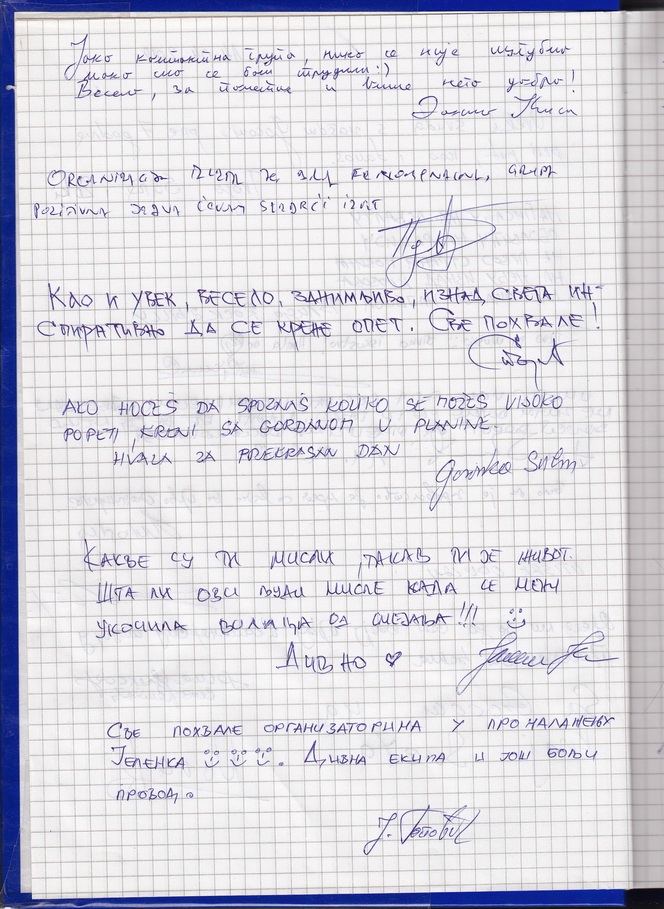 Јако компактна група, нико се није изгубио
иако смо се баш трудили :)
Весело, за памћење и више него добро!
ORGANIZACIJA IZLETA JE BILA FENOMENALNA, GRUPA
POZITIVNA JEDVA ČEKAM SLEDEĆI IZLET
КАО И УВЕК, ВЕСЕЛО, ЗАНИМЉИВО, ИЗНАД СВЕТА ИН-
СПИРАТИВНО ДА СЕ КРЕНЕ ОПЕТ. СВЕ ПОХВАЛЕ!
AKO HOĆEŠ DA SPOZNAŠ KOLIKO SE MOŽEŠ VISOKO
POPETI, KRENI SA GORDANOM U PLANINE.
HVALA ZA PREKRASAN DAN
КАКВЕ СУ ТИ МИСЛИ, ТАКАВ ТИ ЈЕ ЖИВОТ.
ШТА ЛИ ОВИ ЉУДИ МИСЛЕ КАДА СЕ МЕНИ
УКОЧИЛА ВИЛИЦА ОД СМЕЈАЊА!!!
ДИВНО ♥
СВЕ ПОХВАЛЕ ОРГАНИЗАТОРИМА У ПРОНАЛАЖЕЊУ
ЈЕЛЕНКА. ДИВНА ЕКИПА И ЈОШ БОЉИ
ПРОВОД.
Ј. Поповић